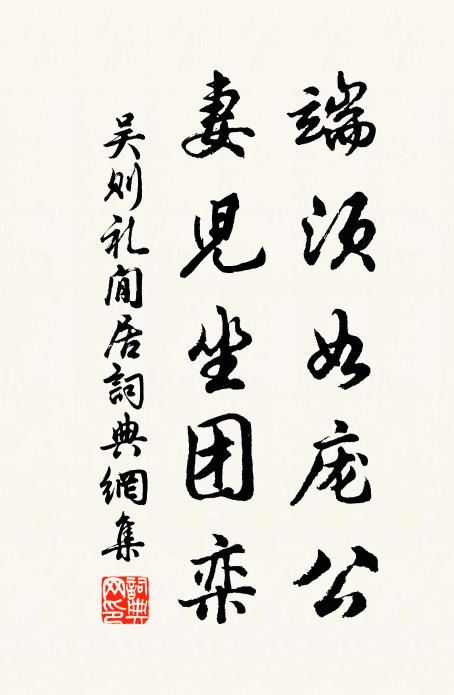 端须如庞公
妻児坐团栾
吴则礼閒居詞典網集
詞典网印